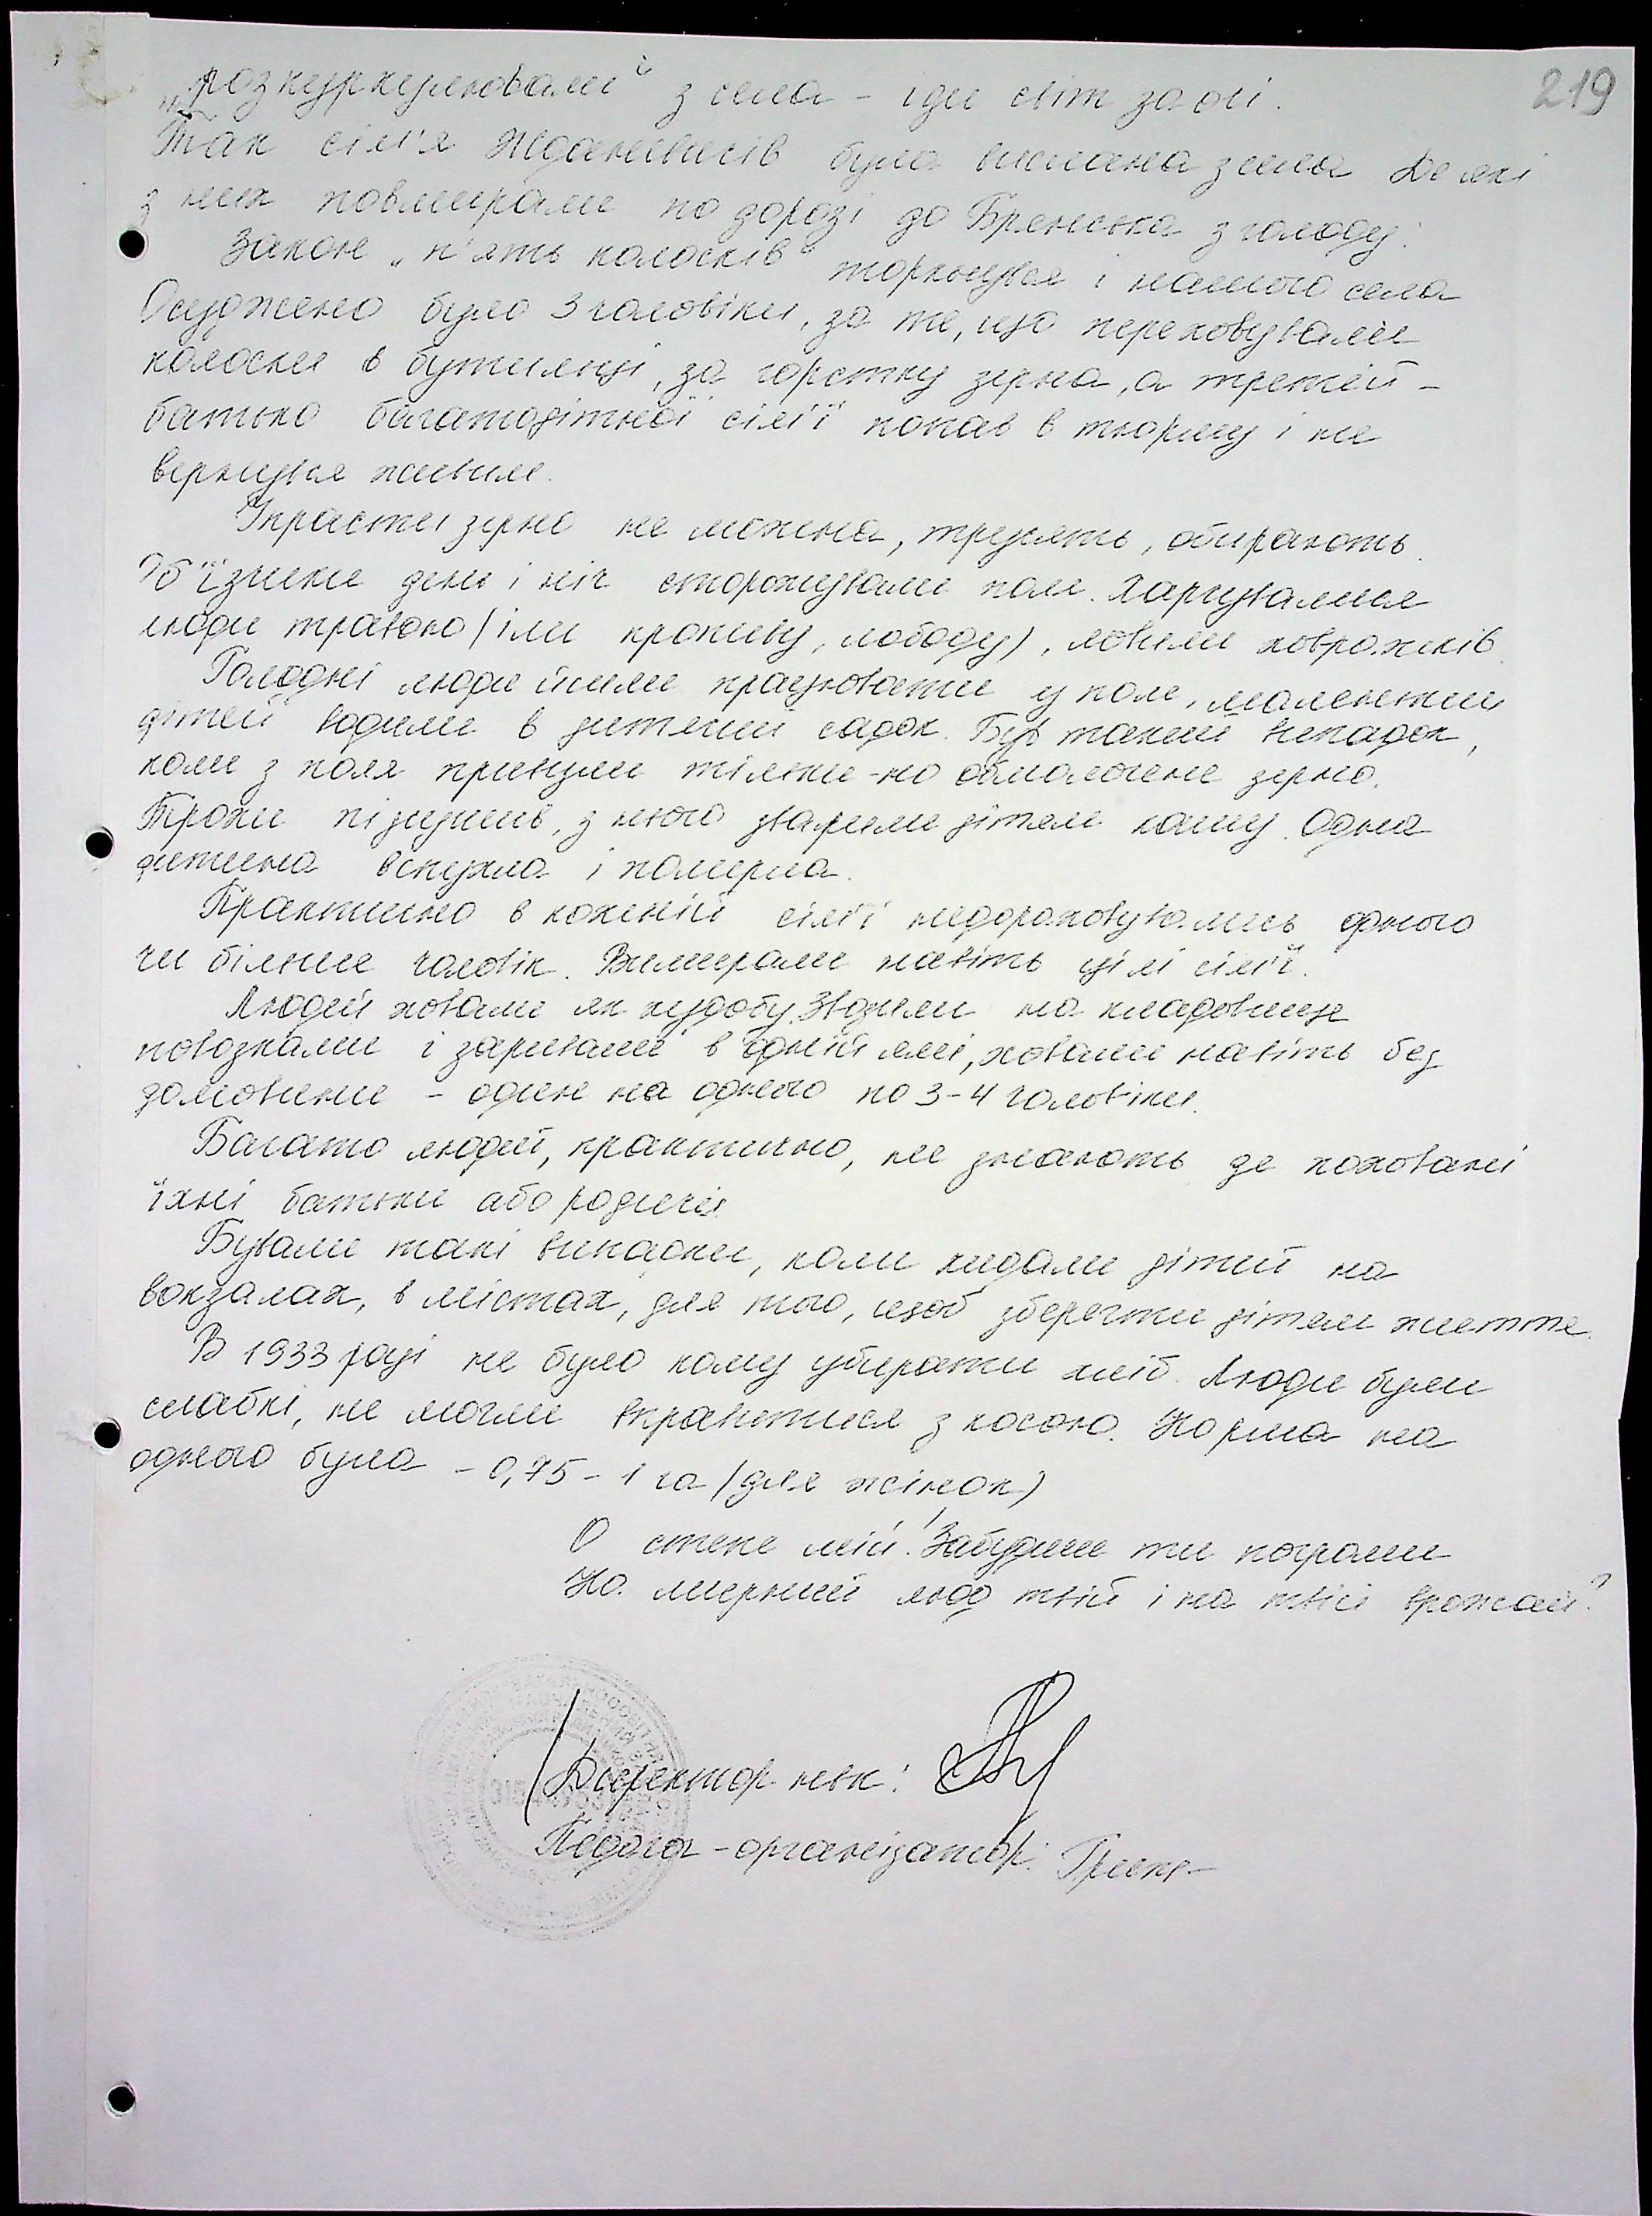 219
„розкуркулювали" з села - іди світ за очі.
Так сім'я Жданевичів була вислана з села Деякі
з них повмирали по дорозі до Брянська з голоду.
Закон „п'ять колосків" торкнувся і нашого села
Осуджено було 3 чоловіки, за те, що переховували
колоски в бутилці, за горстку зерна, а третій -
батько багатодітної сім'ї попав в тюрму і не
вернувся живим.
Украсти зерно не можна, трусять, обирають.
Об'їзники день і ніч сторожували поля. Харчувалися
люди травою (їли кропиву, лободу), ловили ховрашків.
Голодні люди йшли працювати у поле, маленьких
дітей водили в дитячий садок. Був такий випадок,
коли з поля привезли тільки-но обмолочене зерно.
Трохи підсушив, з нього зварили дітям кашу. Одна
дитина вспухла і померла.
Практично в кожній сім'ї недораховувались одного
чи більше чоловік. Вимирали навіть цілі сім'ї.
Людей ховали як худобу. Звозили на кладовище
повозками і заривали в одній ямі, ховали навіть без
домовини - один на одного по 3-4 чоловіки.
Багато людей, практично, не знають де поховані
їхні батьки або родичі.
Бували такі випадки, коли кидали дітей на
вокзалах, в містах, для того, щоб зберегти дітям життя.
В 1933 році не було кому убирати хліб. Люди були
слабкі, не могли вправитися з косою. Норма на
одного була - 0,75 - 1 га (для жінок)
О степе мій! Забудеш ти погроми
На мирний люд твій і на твій врожай?
Директор нвк:
Педагог-організатор: